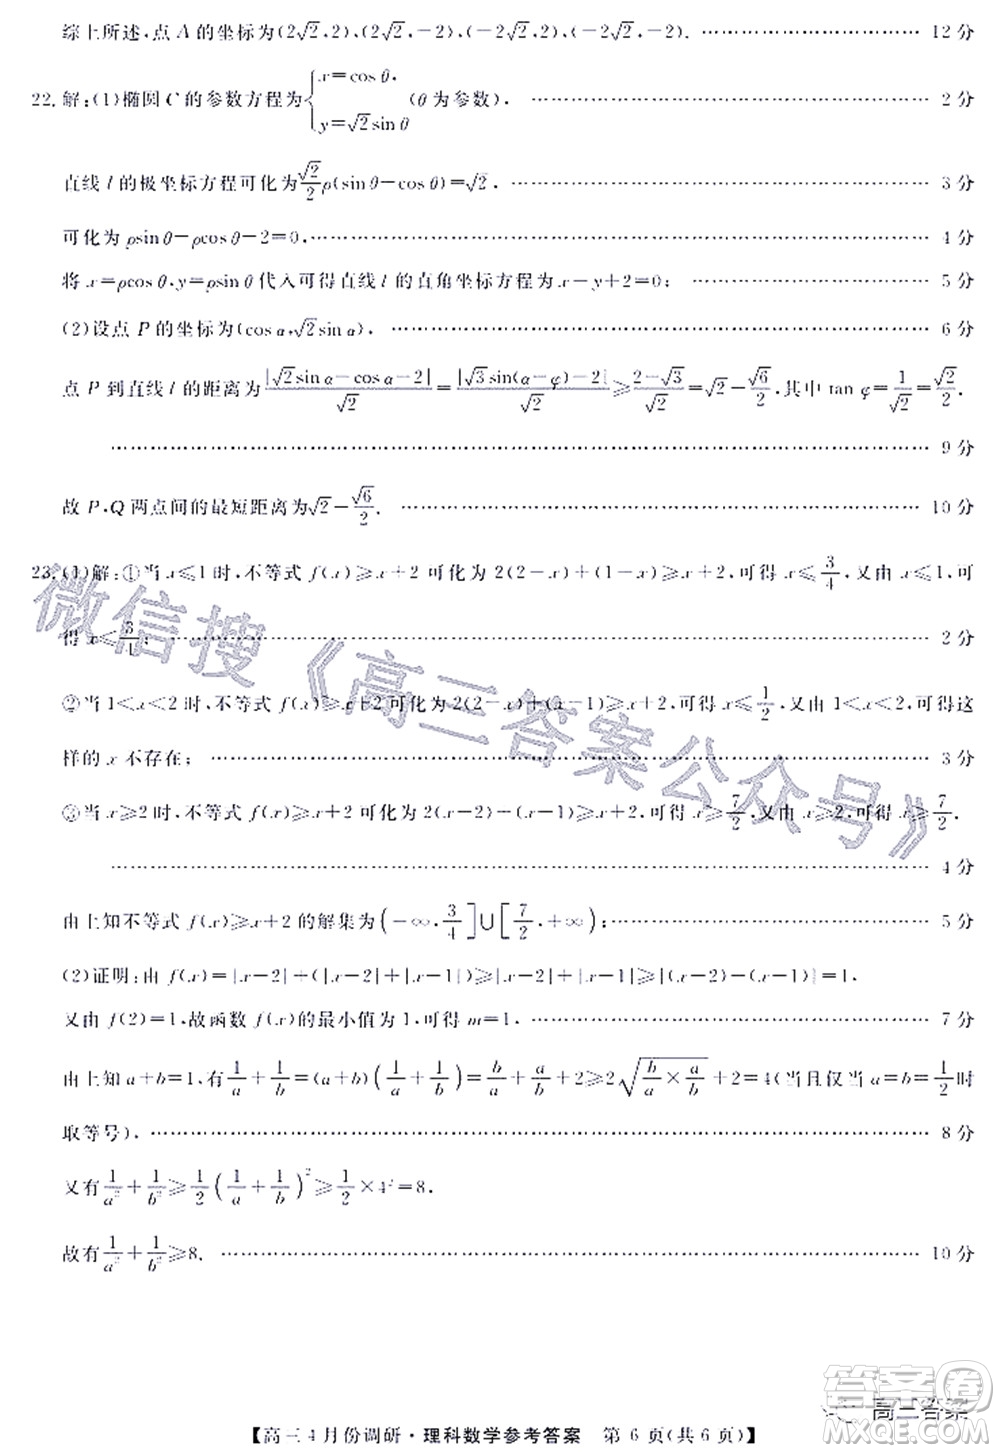 综上所述,点 A 的坐标为(2√2,2),(2√2,-2),(-2√2,2),(-2√2,-2). …… 12 分
22.解:(1)椭圆 C 的参数方程为{x=cos θ, y=√2sin θ (θ 为参数). …… 2 分
直线 l 的极坐标方程可化为√2/2 ρ(sin θ-cos θ)=√2. …… 3 分
可化为 ρsin θ-ρcos θ-2=0, …… 4 分
将 x=ρcos θ,y=ρsin θ 代入可得直线 l 的直角坐标方程为 x-y+2=0; …… 5 分
(2)设点 P 的坐标为(cos α,√2sin α). …… 6 分
点 P 到直线 l 的距离为|√2sin α-cos α-2|/√2=|√3sin(α-φ)-2|/√2≥(2-√3)/√2=√2-√6/2,其中 tan φ=1/√2=√2/2.
…… 9 分
故 P,Q 两点间的最短距离为√2-√6/2. …… 10 分
23.(1)解:①当 x≤1 时,不等式 f(x)≥x+2 可化为 2(2-x)+(1-x)≥x+2,可得 x≤3/4,又由 x≤1,可
得 x≤3/4; …… 2 分
②当 1<x<2 时,不等式 f(x)≥x+2 可化为 2(2-x)+(x-1)≥x+2,可得 x≤1/2,又由 1<x<2,可得这
样的 x 不存在; …… 3 分
③当 x≥2 时,不等式 f(x)≥x+2 可化为 2(x-2)-(x-1)≥x+2,可得 x≥7/2,又由 x≥2,可得 x≥7/2.
…… 4 分
由上知不等式 f(x)≥x+2 的解集为(-∞,3/4]∪[7/2,+∞); …… 5 分
(2)证明:由 f(x)=|x-2|+(|x-2|+|x-1|)≥|x-2|+|(x-2)-(x-1)|≥|x-2|+1≥1.
又由 f(2)=1,故函数 f(x)的最小值为 1,可得 m=1. …… 7 分
由上知 a+b=1,有1/a+1/b=(a+b)(1/a+1/b)=b/a+a/b+2≥2√(b/a×a/b)+2=4(当且仅当 a=b=1/2时
取等号), …… 8 分
又有1/a²+1/b²≥1/2(1/a+1/b)²≥1/2×4²=8.
故有1/a²+1/b²≥8. …… 10 分
微信搜《高三答案公众号》
答案圈
高三答案
【高三4月份调研·理科数学参考答案 第 6 页(共 6 页)】